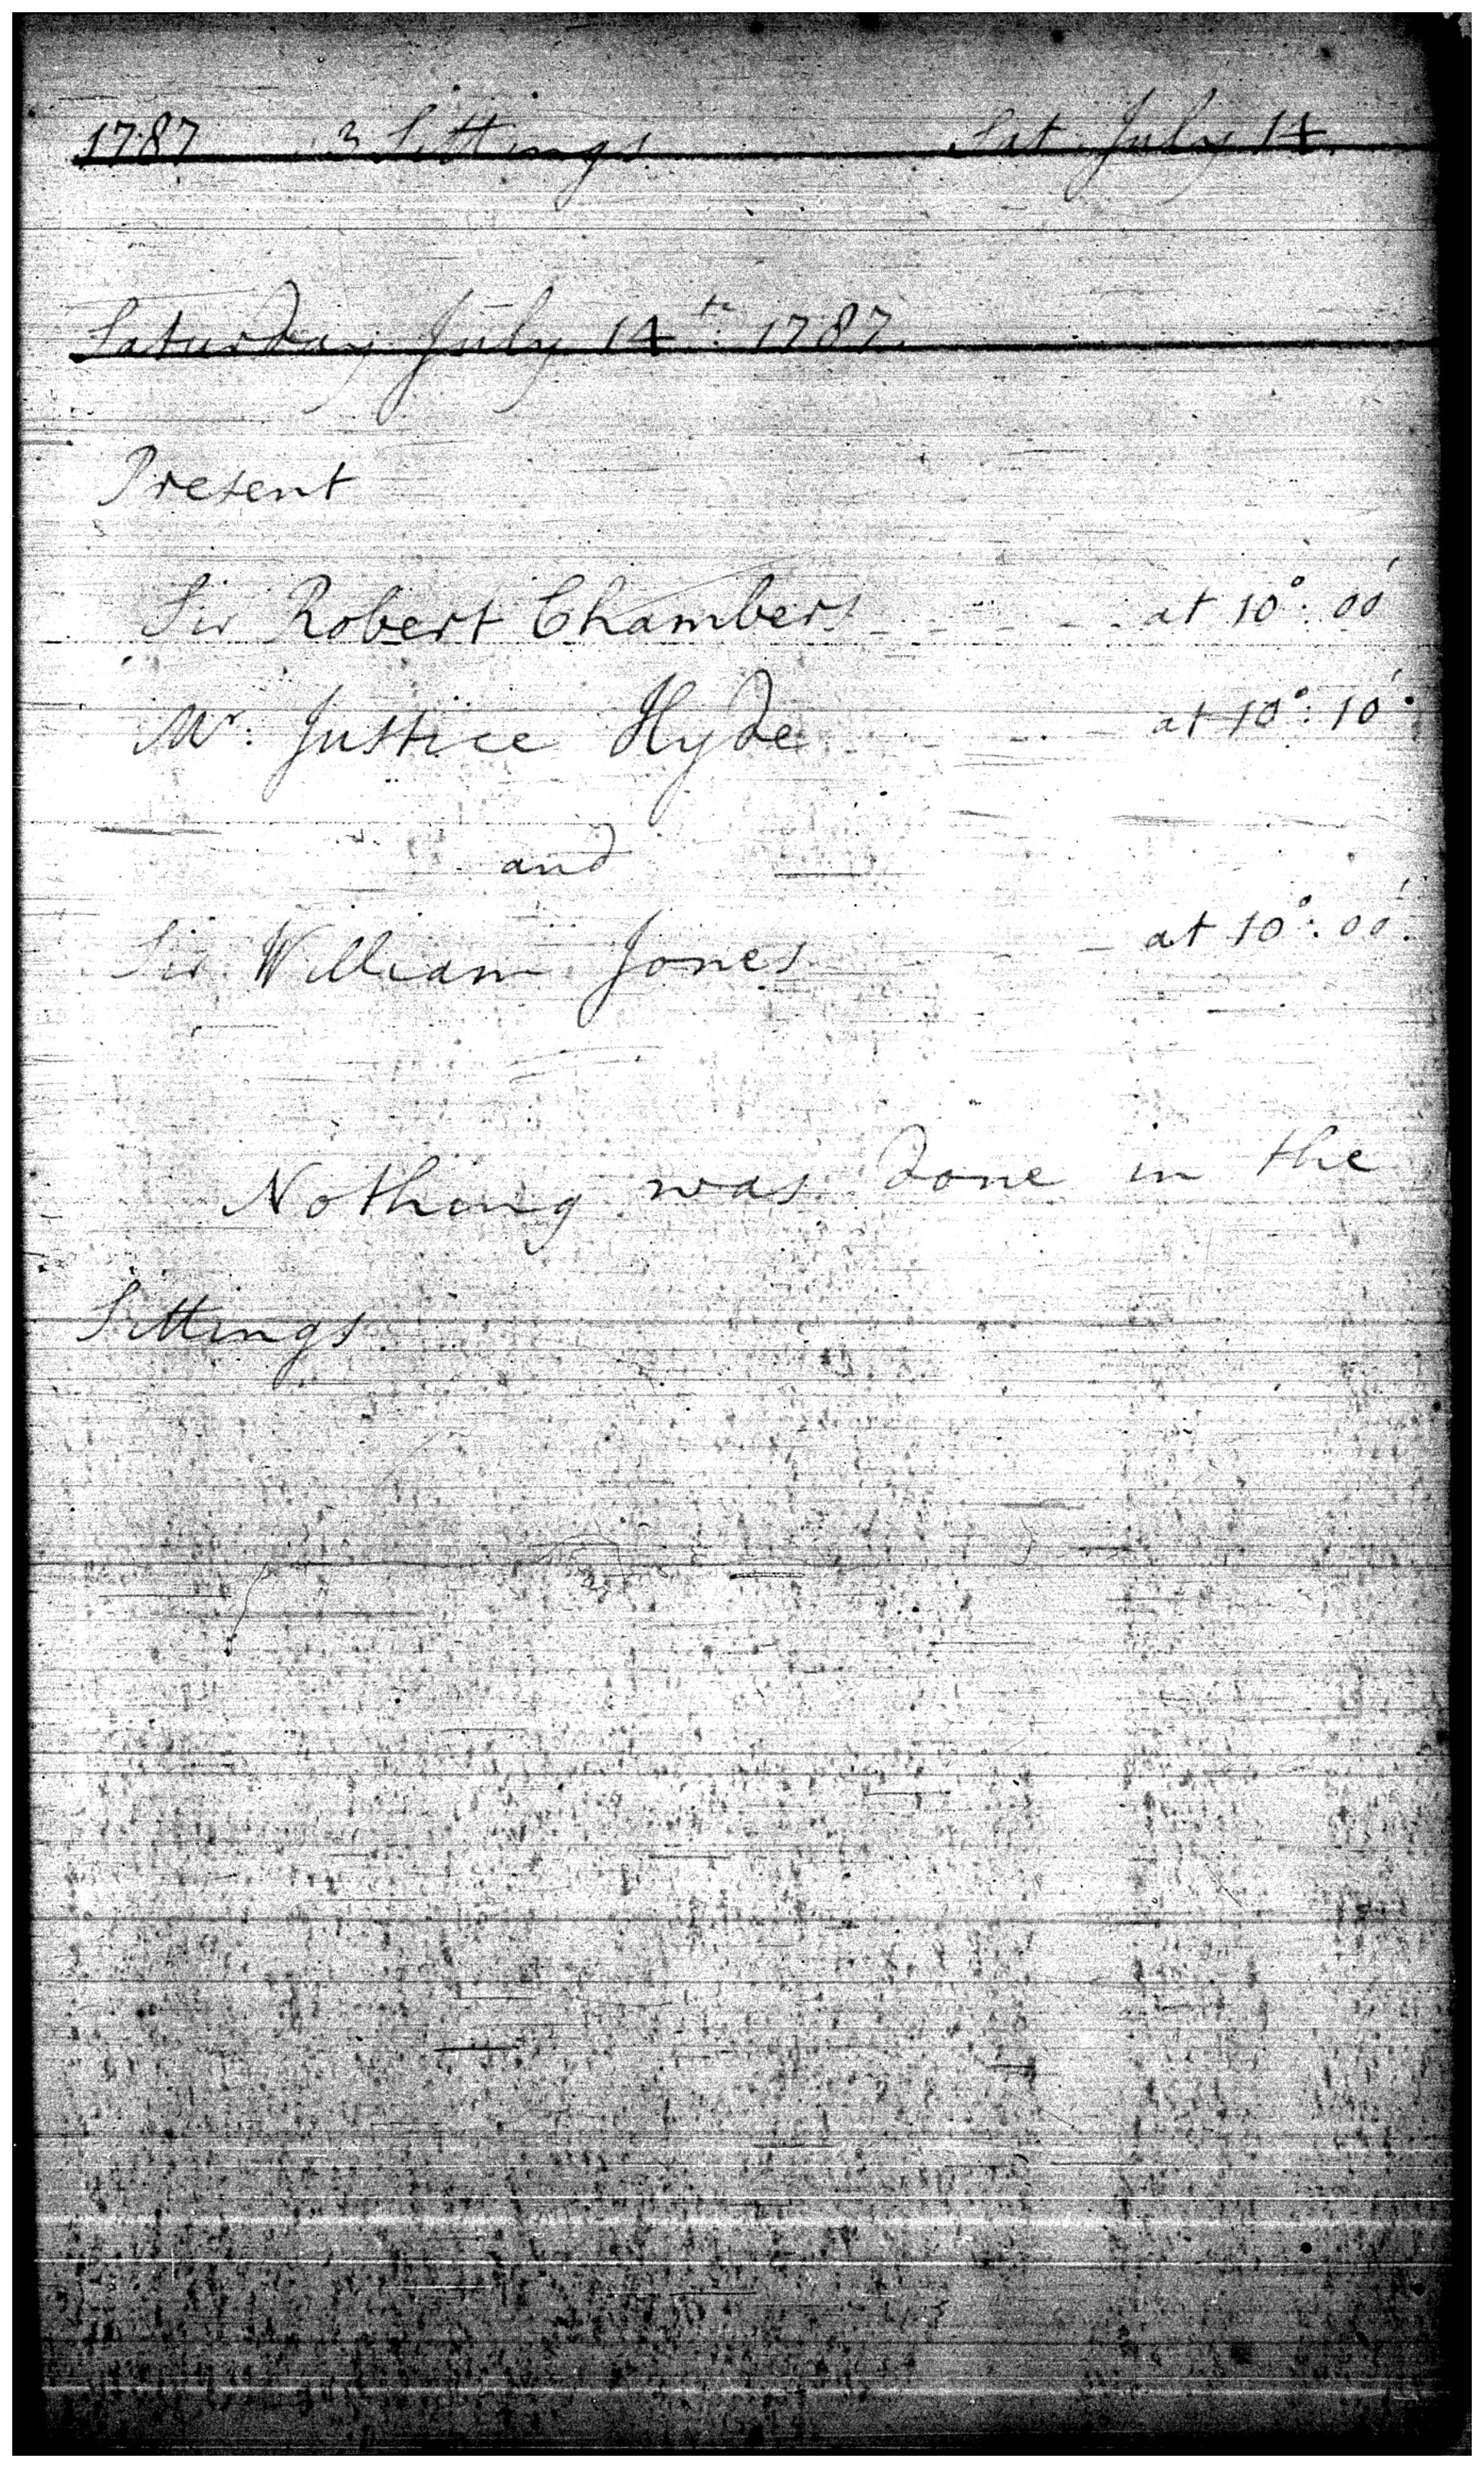 1787 3 Sittings Sat. July 14.
Saturday July 14th 1787.
Present
Sir Robert Chambers at 10°: 00'
Mr. Justice Hyde at 10°: 10'.
and
Sir William Jones at 10°: 00'.
Nothing was done in the
Sittings.